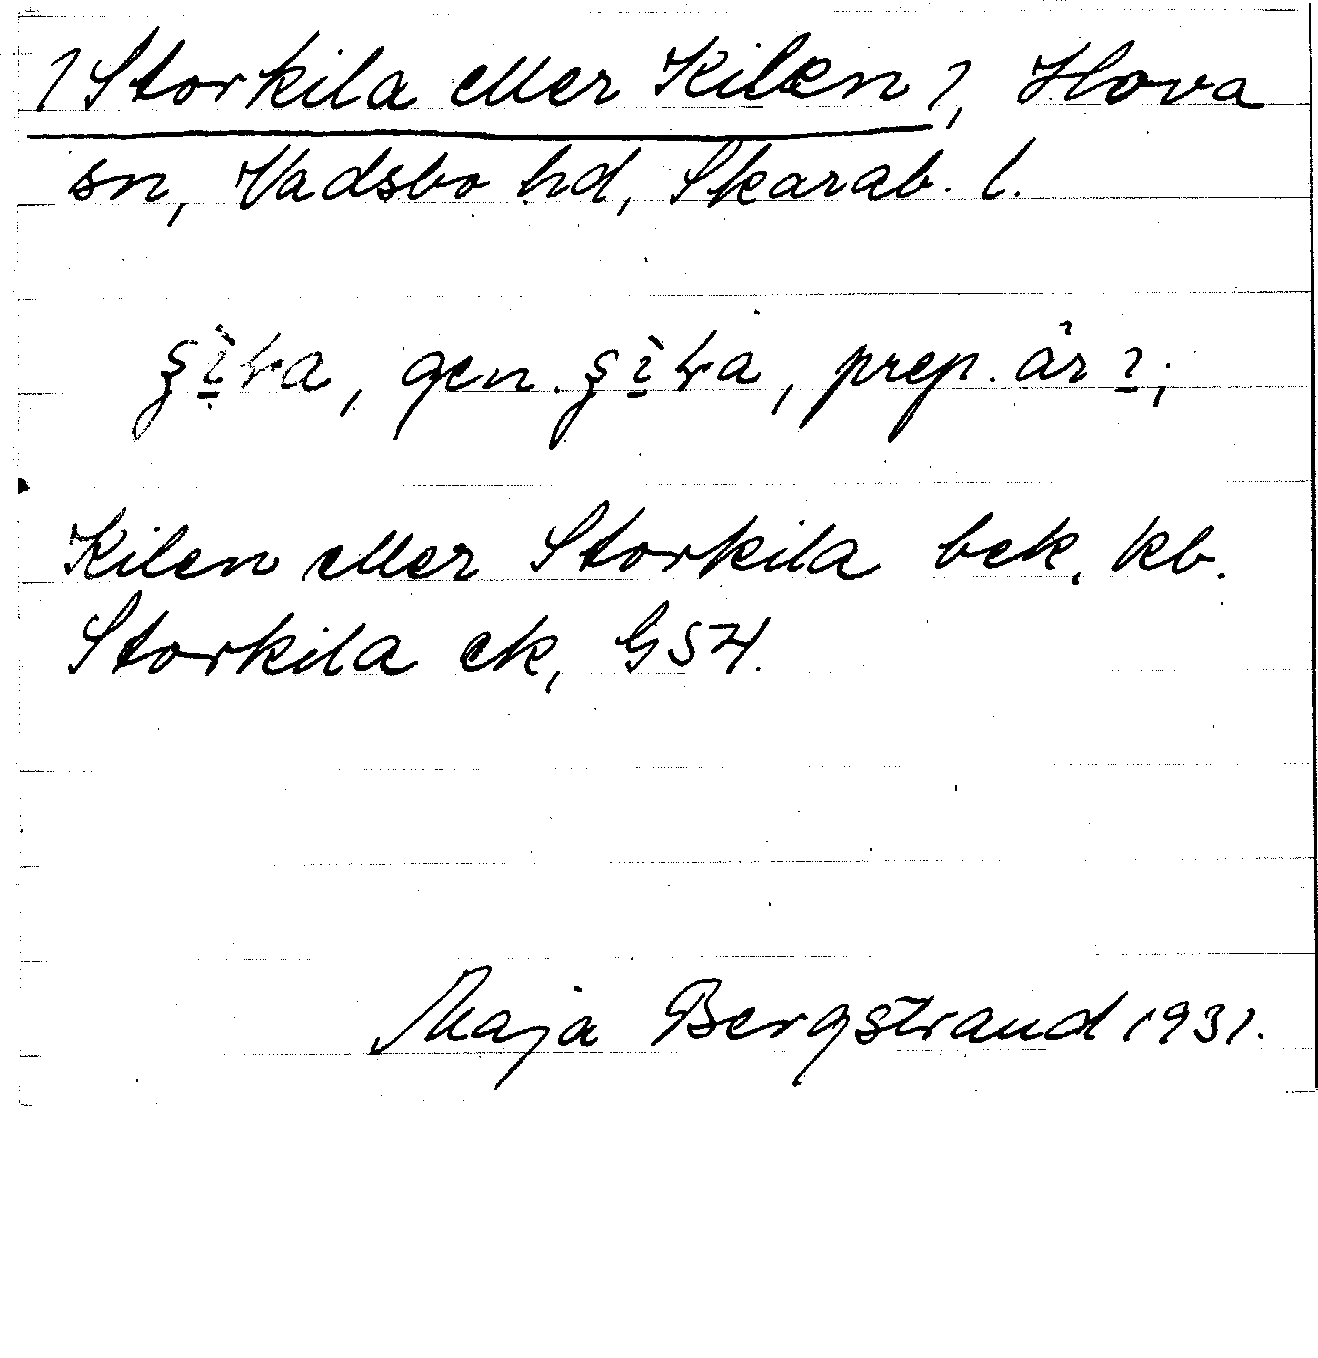 ?Storkila eller Kilen?, Hova
sn, Vadsbo hd, Skarab. l.
gen. prep. är
Kilen eller Storkila bek. kb.
Storkila ek,
Maja Bergstrand 1931.